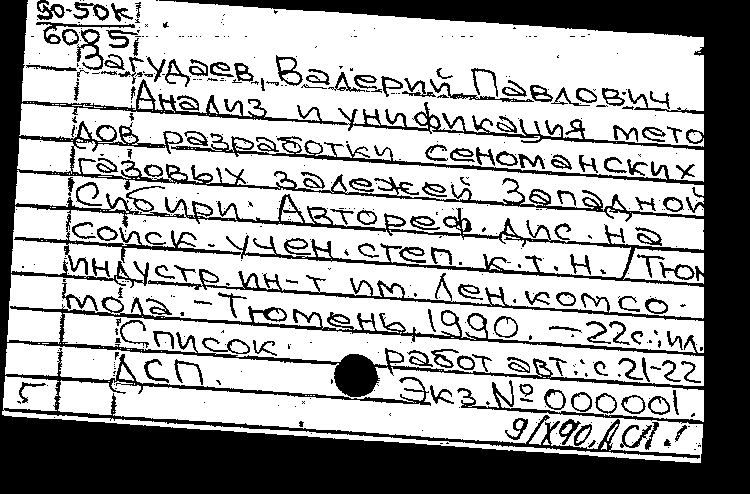 90-50К
6005
Загудаев, Валерий Павлович
Анализ и унификация мето
дов разработки сеноманских
газовых залежей Западной
Сибири: Автореф. дис. на
соиск. учен. степ. к.т.н. /Тюм
индустр. ин-т им. Лен. комсо-
мола. - Тюмень, 1990. - 22с.: ил.
Список работ авт.: с.21-22
ДСП. Экз. № 000001.
5
9/X90.ДСП.!